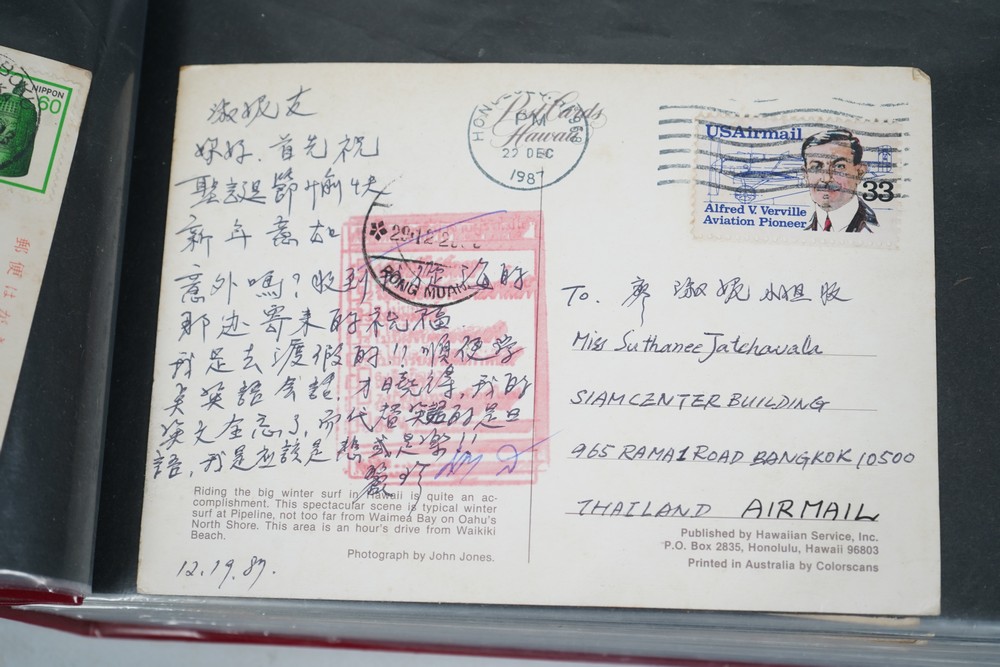 NIPPON
60
淑妮友
妳好.首先祝
聖誕節愉快
新年萬如
意外嗎?收到 海的
那边寄来的祝福.
我是去渡假的!!順便学
英語会話.才曉得,我的
英文全忘了,而代替 的是日
語,我是應該是悲或是樂!!
麗珍
Riding the big winter surf in Hawaii is quite an ac-
complishment. This spectacular scene is typical winter
surf at Pipeline, not too far from Waimea Bay on Oahu's
North Shore. This area is an hour's drive from Waikiki
Beach.
Photograph by John Jones.
12.19.87.
Post Cards
Hawaii
PM
22 DEC
1987
USAirmail
33
Alfred V. Verville
Aviation Pioneer
To. 廖淑妮小姐收
Miss Suthanee Jatchavala
SIAMCENTER BUILDING
965 RAMA1 ROAD BANGKOK 10500
THAILAND AIRMAIL
Published by Hawaiian Service, Inc.
P.O. Box 2835, Honolulu, Hawaii 96803
Printed in Australia by Colorscans